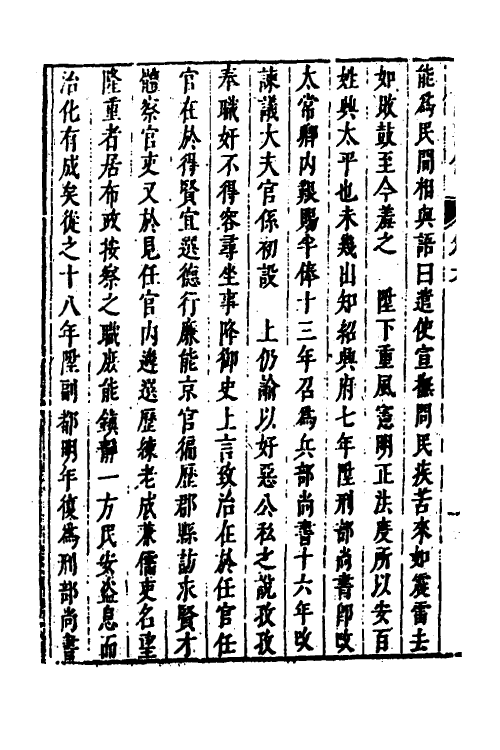 能為民間相與語曰遣使宣撫問民疾苦來如震雷去
如敗鼓至今羞之　陛下重風憲明正法度所以安百
姓興太平也未幾出知紹興府七年陞刑部尚書即改
太常卿內艱賜半俸十三年召為兵部尚書十六年改
諫議大夫官係初設　上仍諭以好惡公私之說孜孜
奉職奸不得容尋坐事降御史上言致治在於任官任
官在於得賢宜選德行廉能京官徧歷郡縣訪求賢才
體察官吏又於見任官內遴選歷練老成兼儒吏名望
隆重者居布政按察之職庶能鎮靜一方民安盜息而
治化有成矣從之十八年陞副都明年復為刑部尚書